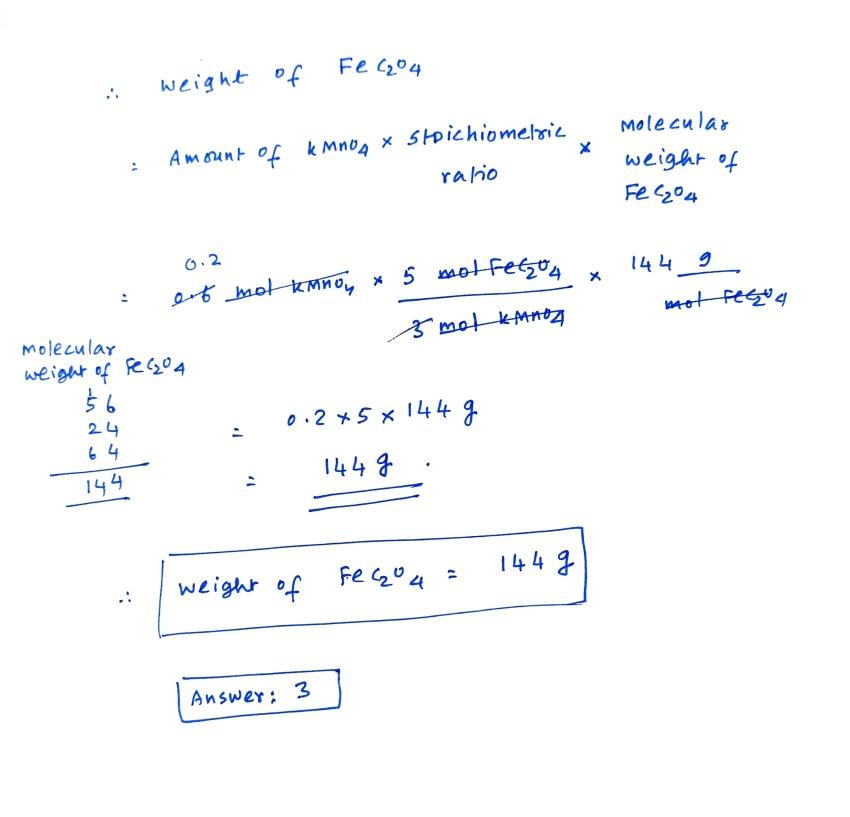 ∴ weight of FeC2O4
= Amount of KMnO4 × stoichiometric ratio × Molecular weight of FeC2O4
0.2
= 0.6 mol KMnO4 × 5 mol FeC2O4 / 3 mol KMnO4 × 144 g / mol FeC2O4
molecular
weight of FeC2O4
1
56
24
64
144
= 0.2 × 5 × 144 g
= 144 g.
∴ weight of FeC2O4 = 144 g
Answer: 3